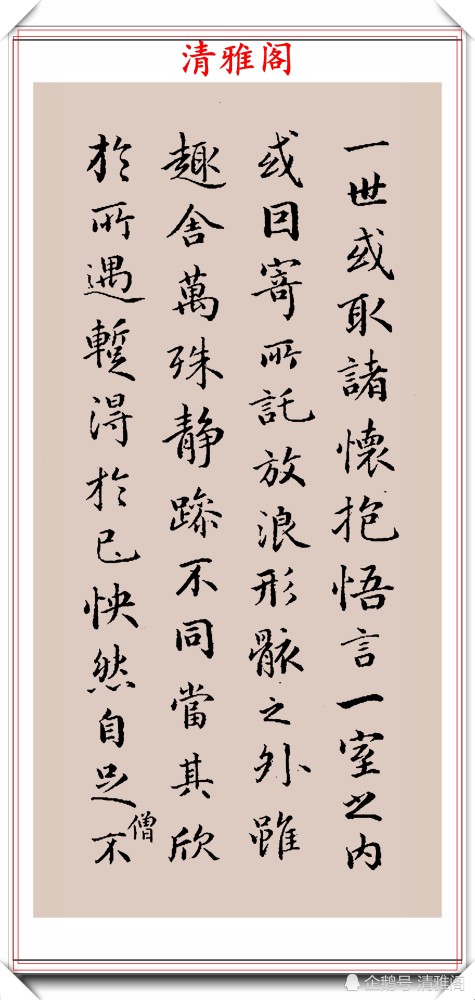 清雅阁
一世或取諸懷抱悟言一室之内
或因寄所託放浪形骸之外雖
趣舍萬殊静躁不同當其欣
於所遇暫得於己怏然自足不
僧
企鹅号 清雅阁